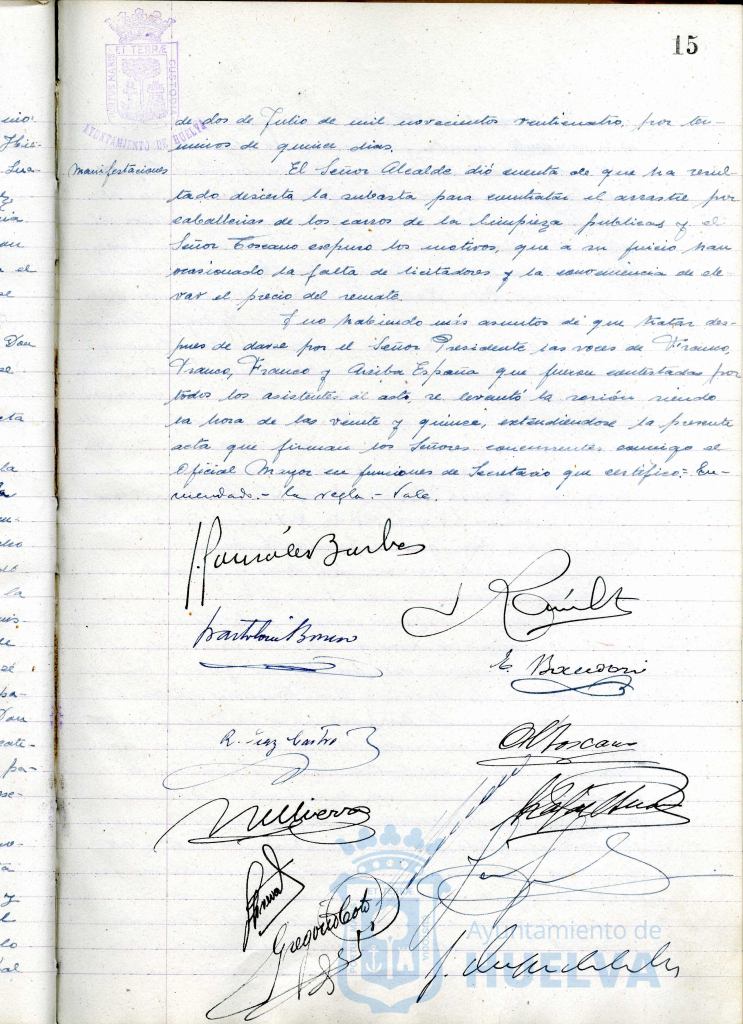 15
PORTUS MARIS ET TERRÆ CUSTODIA
AYUNTAMIENTO DE HUELVA
de dos de Julio de mil novecientos venticuatro, por ter-
minos de quince dias.
Manifestaciones
El Señor Alcalde dió cuenta de que ha resul-
tado desierta la subasta para contratar el arrastre por
caballerias de los carros de la limpieza publica y el
Señor Toscano expuso los motivos, que a su juicio han
ocasionado la falta de licitadores y la conveniencia de ele-
var el precio del remate.
Y no habiendo más asuntos de que tratar des-
pues de darse por el Señor Presidente las voces de Franco,
Franco, Franco y Arriba España que fueron contestadas por
todos los asistentes al acto, se levantó la sesión siendo
la hora de las veinte y quince, extendiendose la presente
acta que firman los Señores concurrentes conmigo el
Oficial Mayor en funciones de Secretario que certifico.- En-
mendado.- la regla.- Vale.
R. Diaz Castro
Toscano
Gregorio Coto
Ayuntamiento de
HUELVA